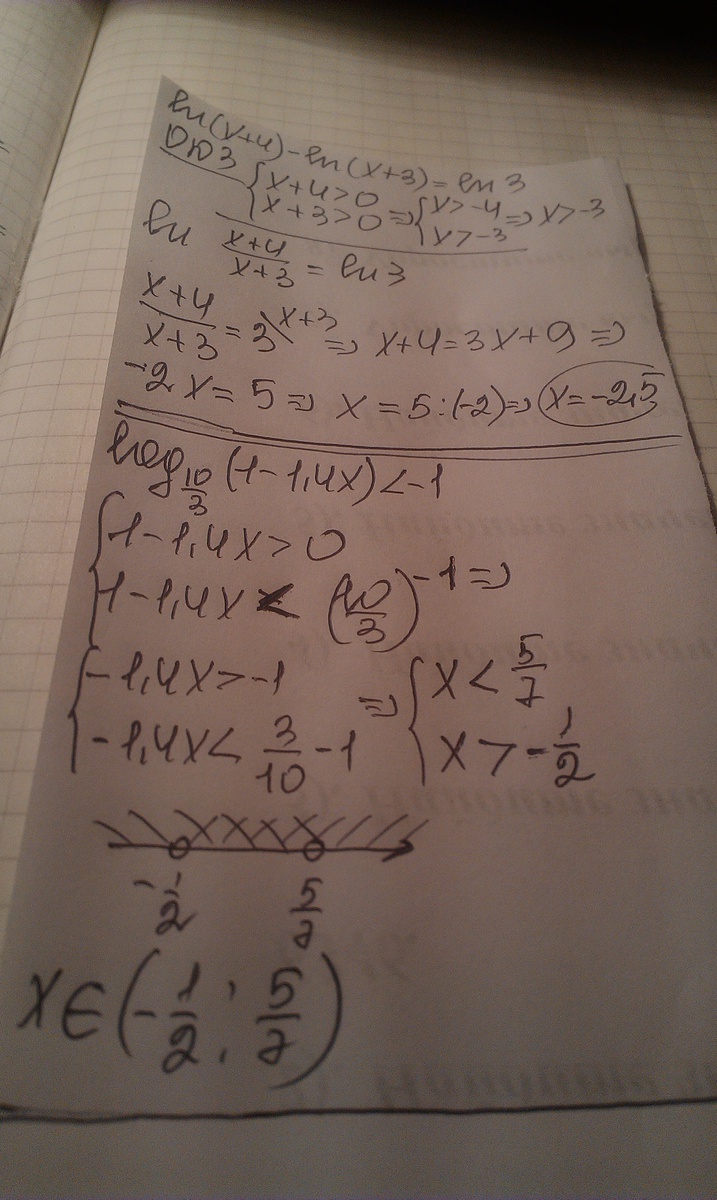 ln(x+4)-ln(x+3)=ln 3
ОДЗ {x+4>0
x+3>0 => {x>-4
x>-3 => x>-3
ln (x+4)/(x+3) = ln 3
(x+4)/(x+3) = 3\^(x+3) => x+4=3x+9 =>
-2x=5 => x=5:(-2) => x=-2,5
log_(10/3) (1-1,4x)<-1
{1-1,4x>0
1-1,4x<(10/3)^(-1) =>
{-1,4x>-1
-1,4x<3/10-1 => {x<5/7
x>-1/2
-1/2 5/7
x∈(-1/2; 5/7)